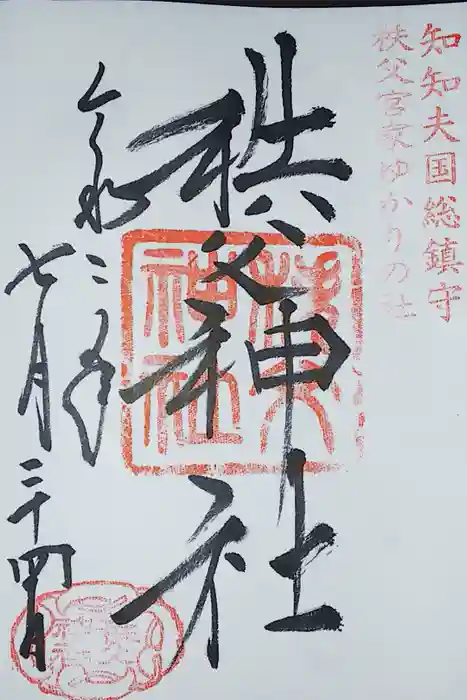 知知夫国総鎮守
秩父宮家ゆかりの社
秩父神社
令和二年
七月二十四日